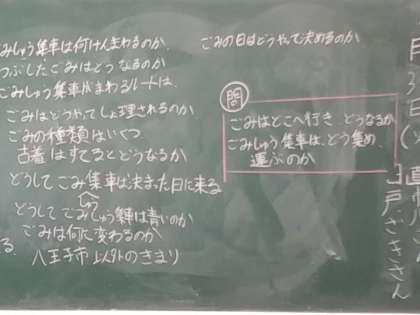 ごみしゅう集車は何けんまわるのか
つぶしたごみはどうなるのか
ごみしゅう集車がまわるルートは
ごみはどうやってしょ理されるのか
ごみの種類はいくつ
古着はすてるとどうなるか
どうしてごみ集車は決まった日に来る
しゅう
どうしてごみしゅう集車は青いのか
ごみは何に変わるのか
る
八王子市以外のきまり
ごみの日はどうやって決めるのか
問
ごみはどこへ行き、どうなるか
ごみしゅう集車は、どう集め、
運ぶのか
月
日
戸ざきさん